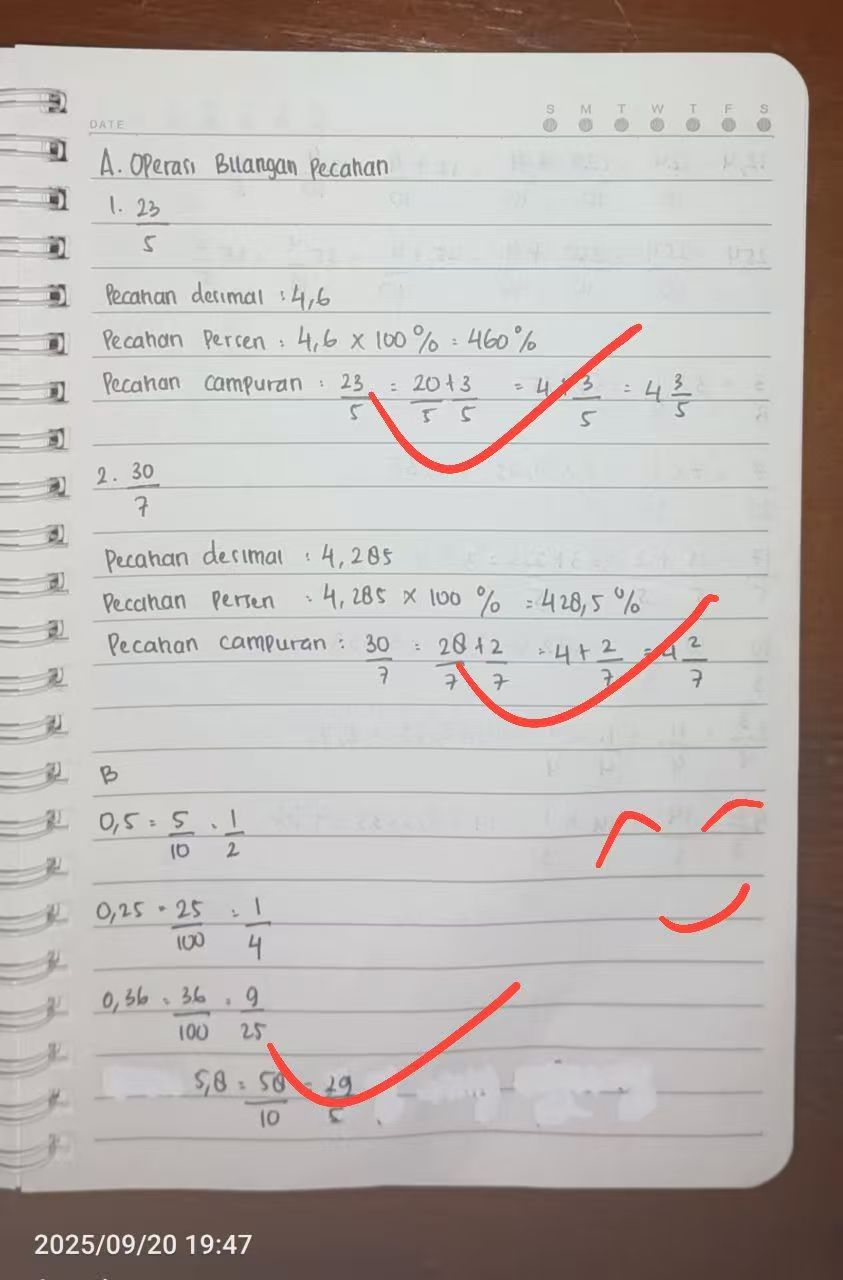 DATE
S M T W T F S
A. Operasi Bilangan Pecahan
1. 23/5
Pecahan desimal : 4,6
Pecahan Persen : 4,6 x 100 % = 460 %
Pecahan campuran : 23/5 = 20/5 + 3/5 = 4 + 3/5 = 4 3/5
2. 30/7
Pecahan desimal : 4,285
Pecahan Persen : 4,285 x 100 % = 428,5 %
Pecahan campuran : 30/7 = 28/7 + 2/7 = 4 + 2/7 = 4 2/7
B
0,5 = 5/10 = 1/2
0,25 = 25/100 = 1/4
0,36 = 36/100 = 9/25
5,8 = 58/10 = 29/5
2025/09/20 19:47